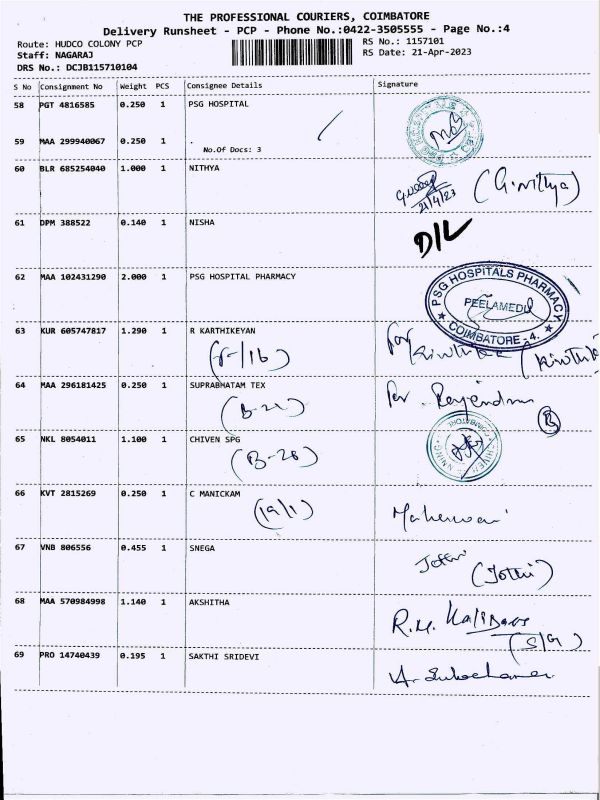 THE PROFESSIONAL COURIERS, COIMBATORE
Delivery Runsheet - PCP - Phone No.:0422-3505555 - Page No.:4
Route: HUDCO COLONY PCP
Staff: NAGARAJ
DRS No.: DCJB115710104
RS No.: 1157101
RS Date: 21-Apr-2023
S No Consignment No Weight PCS Consignee Details Signature
58 PGT 4816585 0.250 1 PSG HOSPITAL
59 MAA 299940067 0.250 1 .
No.Of Docs: 3
60 BLR 685254040 1.000 1 NITHYA
21/4/23 (G.nithya)
61 DPM 388522 0.140 1 NISHA
D/L
62 MAA 102431290 2.000 1 PSG HOSPITAL PHARMACY
PSG HOSPITALS PHARMACY
PEELAMEDU
COIMBATORE-4.
63 KUR 605747817 1.290 1 R KARTHIKEYAN
(F-16) for
64 MAA 296181425 0.250 1 SUPRABHATAM TEX
(B-22) for Rajendran
B
65 NKL 8054011 1.100 1 CHIVEN SPG
(B-28)
66 KVT 2815269 0.250 1 C MANICKAM
(19/1) Maheswari
67 VNB 806556 0.455 1 SNEGA
Jothi
(Jothi)
68 MAA 570984998 1.140 1 AKSHITHA
R.M. Kalidass
(S/G)
69 PRO 14740439 0.195 1 SAKTHI SRIDEVI
A. Sulochana